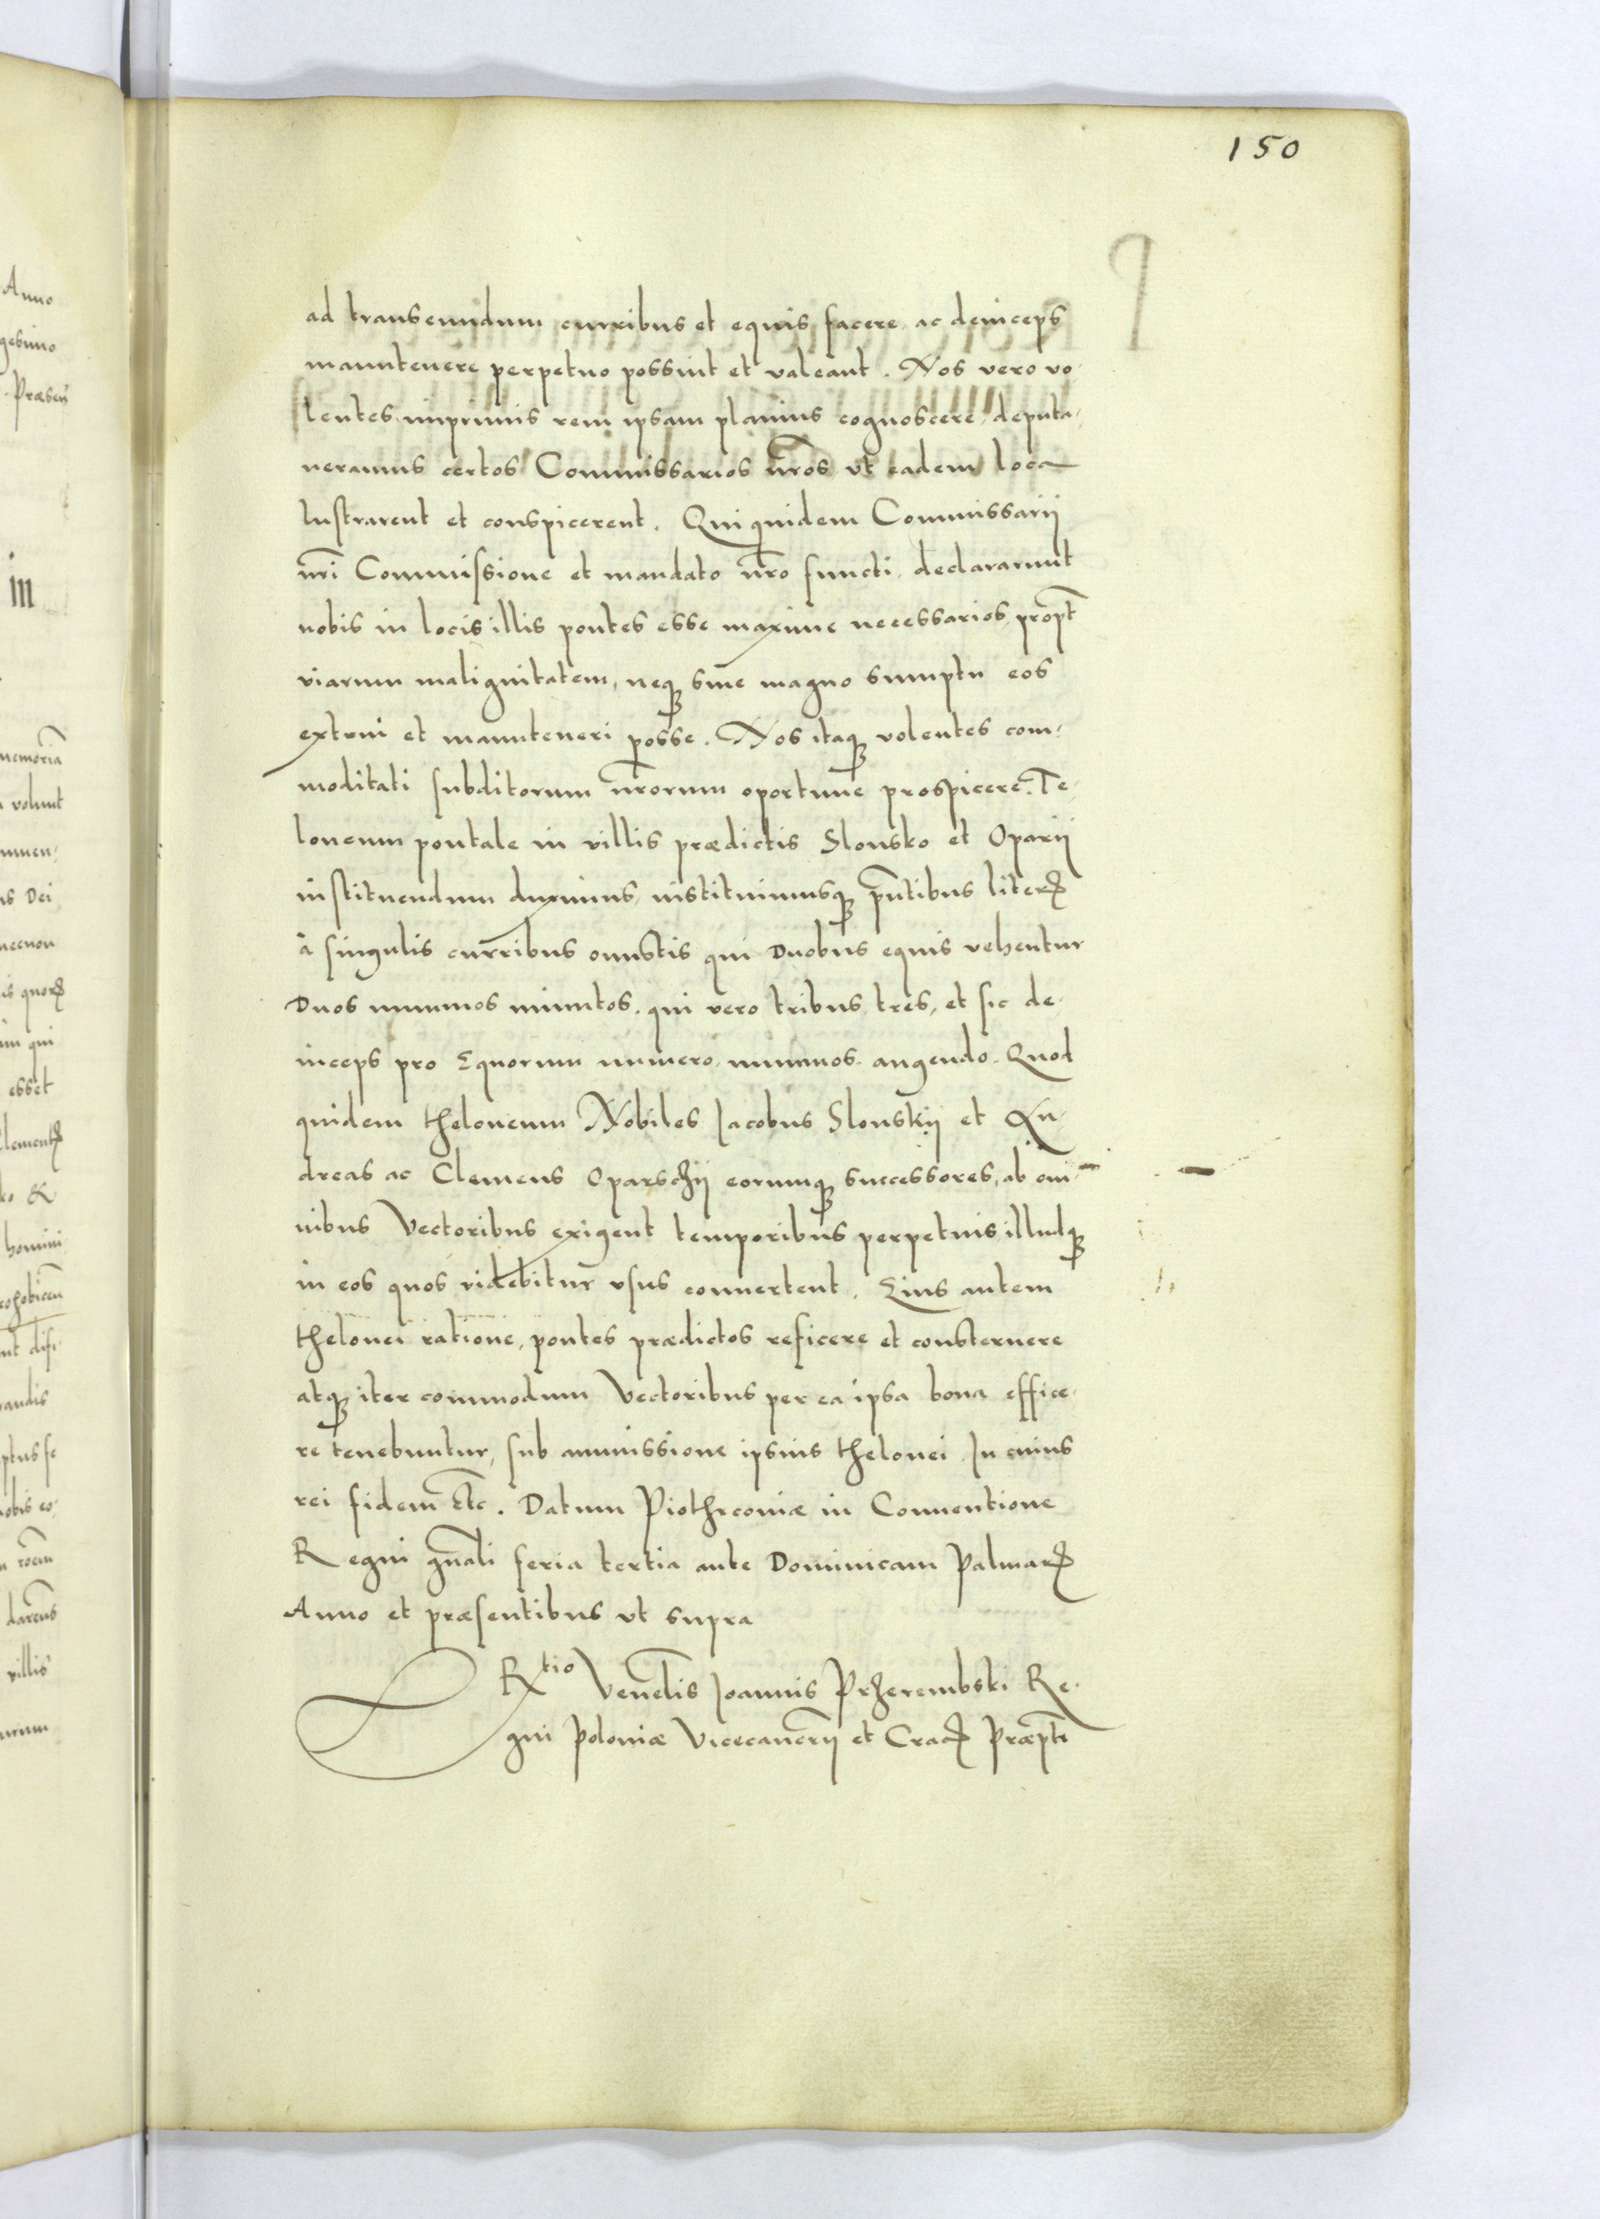 150
ad transeundum curribus et equis facere ac deinceps
manutenere perpetuo possint et valeant. Nos vero vo-
lentes inprimis rem ipsam planius cognoscere, deputa-
veramus certos Commissarios nr̃os ut eadem loca
lustrarent et conspicerent. Qui quidem Commissarii
nr̃i Commissione et mandato nr̃o functi, declararunt
nobis in locis illis pontes esse maxime necessarios propt̃
viarum malignitatem, neqꝫ sine magno sumptu eos
extrui et manuteneri posse. Nos itaqꝫ volentes com-
moditati subditorum nr̃orum oportune prospicere. Te-
loneum pontale in villis prædictis Slonsko et Oparii
instituendum duximus, instituimusqꝫ pn̄tibus literꝭ
à singulis curribus onustis qui Duobus equis vehentur
Duos nummos minutos, qui vero tribus tres, et sic de-
inceps pro Equorum numero, nummos augendo. Quod
quidem theloneum Nobiles Jacobus Slonskij et An-
dreas ac Clemens Oparschij eorumqꝫ successores, ab om-
nibus Vectoribus exigent temporibus perpetuis, illudqꝫ
in eos quos videbitur usus convertent. Eius autem
thelonei ratione, pontes prædictos reficere et consternere
atqꝫ iter commodum Vectoribus per ea ipsa bona effice-
re tenebuntur, sub ammissione ipsius thelonei. In cuius
rei fidem Etc. Datum Piothrconiæ in Conventione
Regni gn̄ali feria tertia ante Dominicam Palmarꝭ
Anno et præsentibus ut supra
Rtio Venelis Joannis Przerembski Re-
gni Poloniæ Vicecancrij et Cracꝭ Præpti